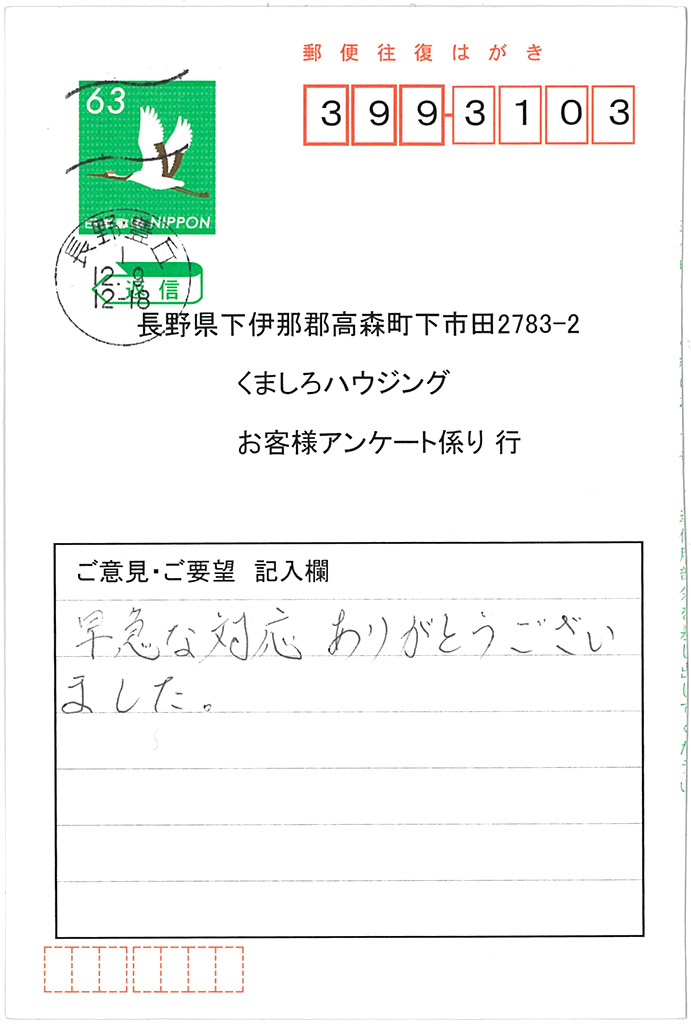 郵便往復はがき
63
399-3103
日本郵便 NIPPON
長野豊丘
1
12.9
12-18
返信
長野県下伊那郡高森町下市田2783-2
くましろハウジング
お客様アンケート係り 行
ご意見・ご要望 記入欄
早急な対応 ありがとうござい
ました。